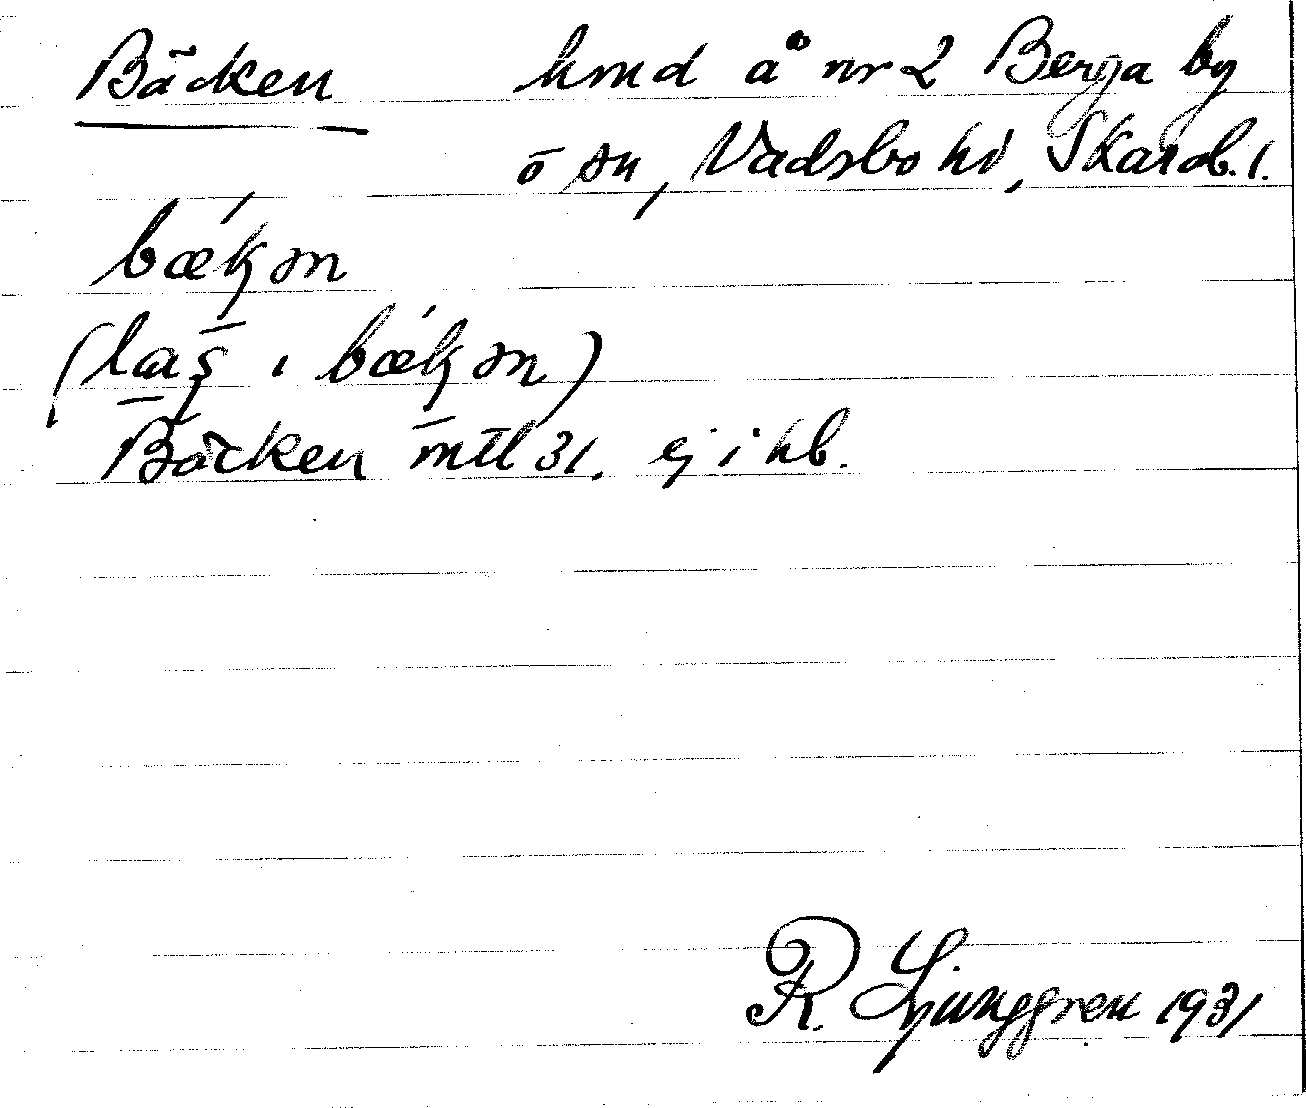 Bäcken hmd å nr 2 Berga by
ō sn, Vadsbo hd, Skarab. l.
bǽkən
(laş i bǽkən)
Bäcken mtl 31. ej i hb.
R. Ljunggren 1931